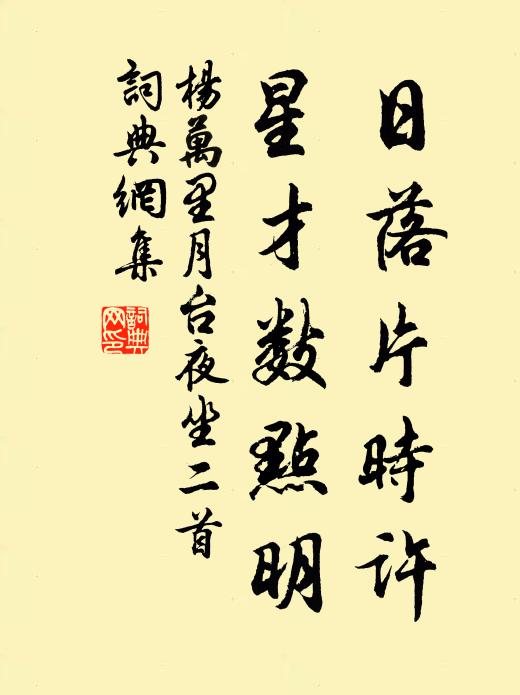 日落片時許
星才數點明
楊萬里月台夜坐二首
詞典網集
詞典网印